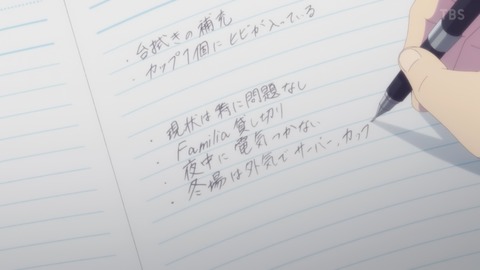 TBS
・台拭きの補充
・カップ1個にヒビが入っている
・現状は特に問題なし
・Familia貸し切り
・夜中に電気つかない
・冬場は外気でサーバー、カップ